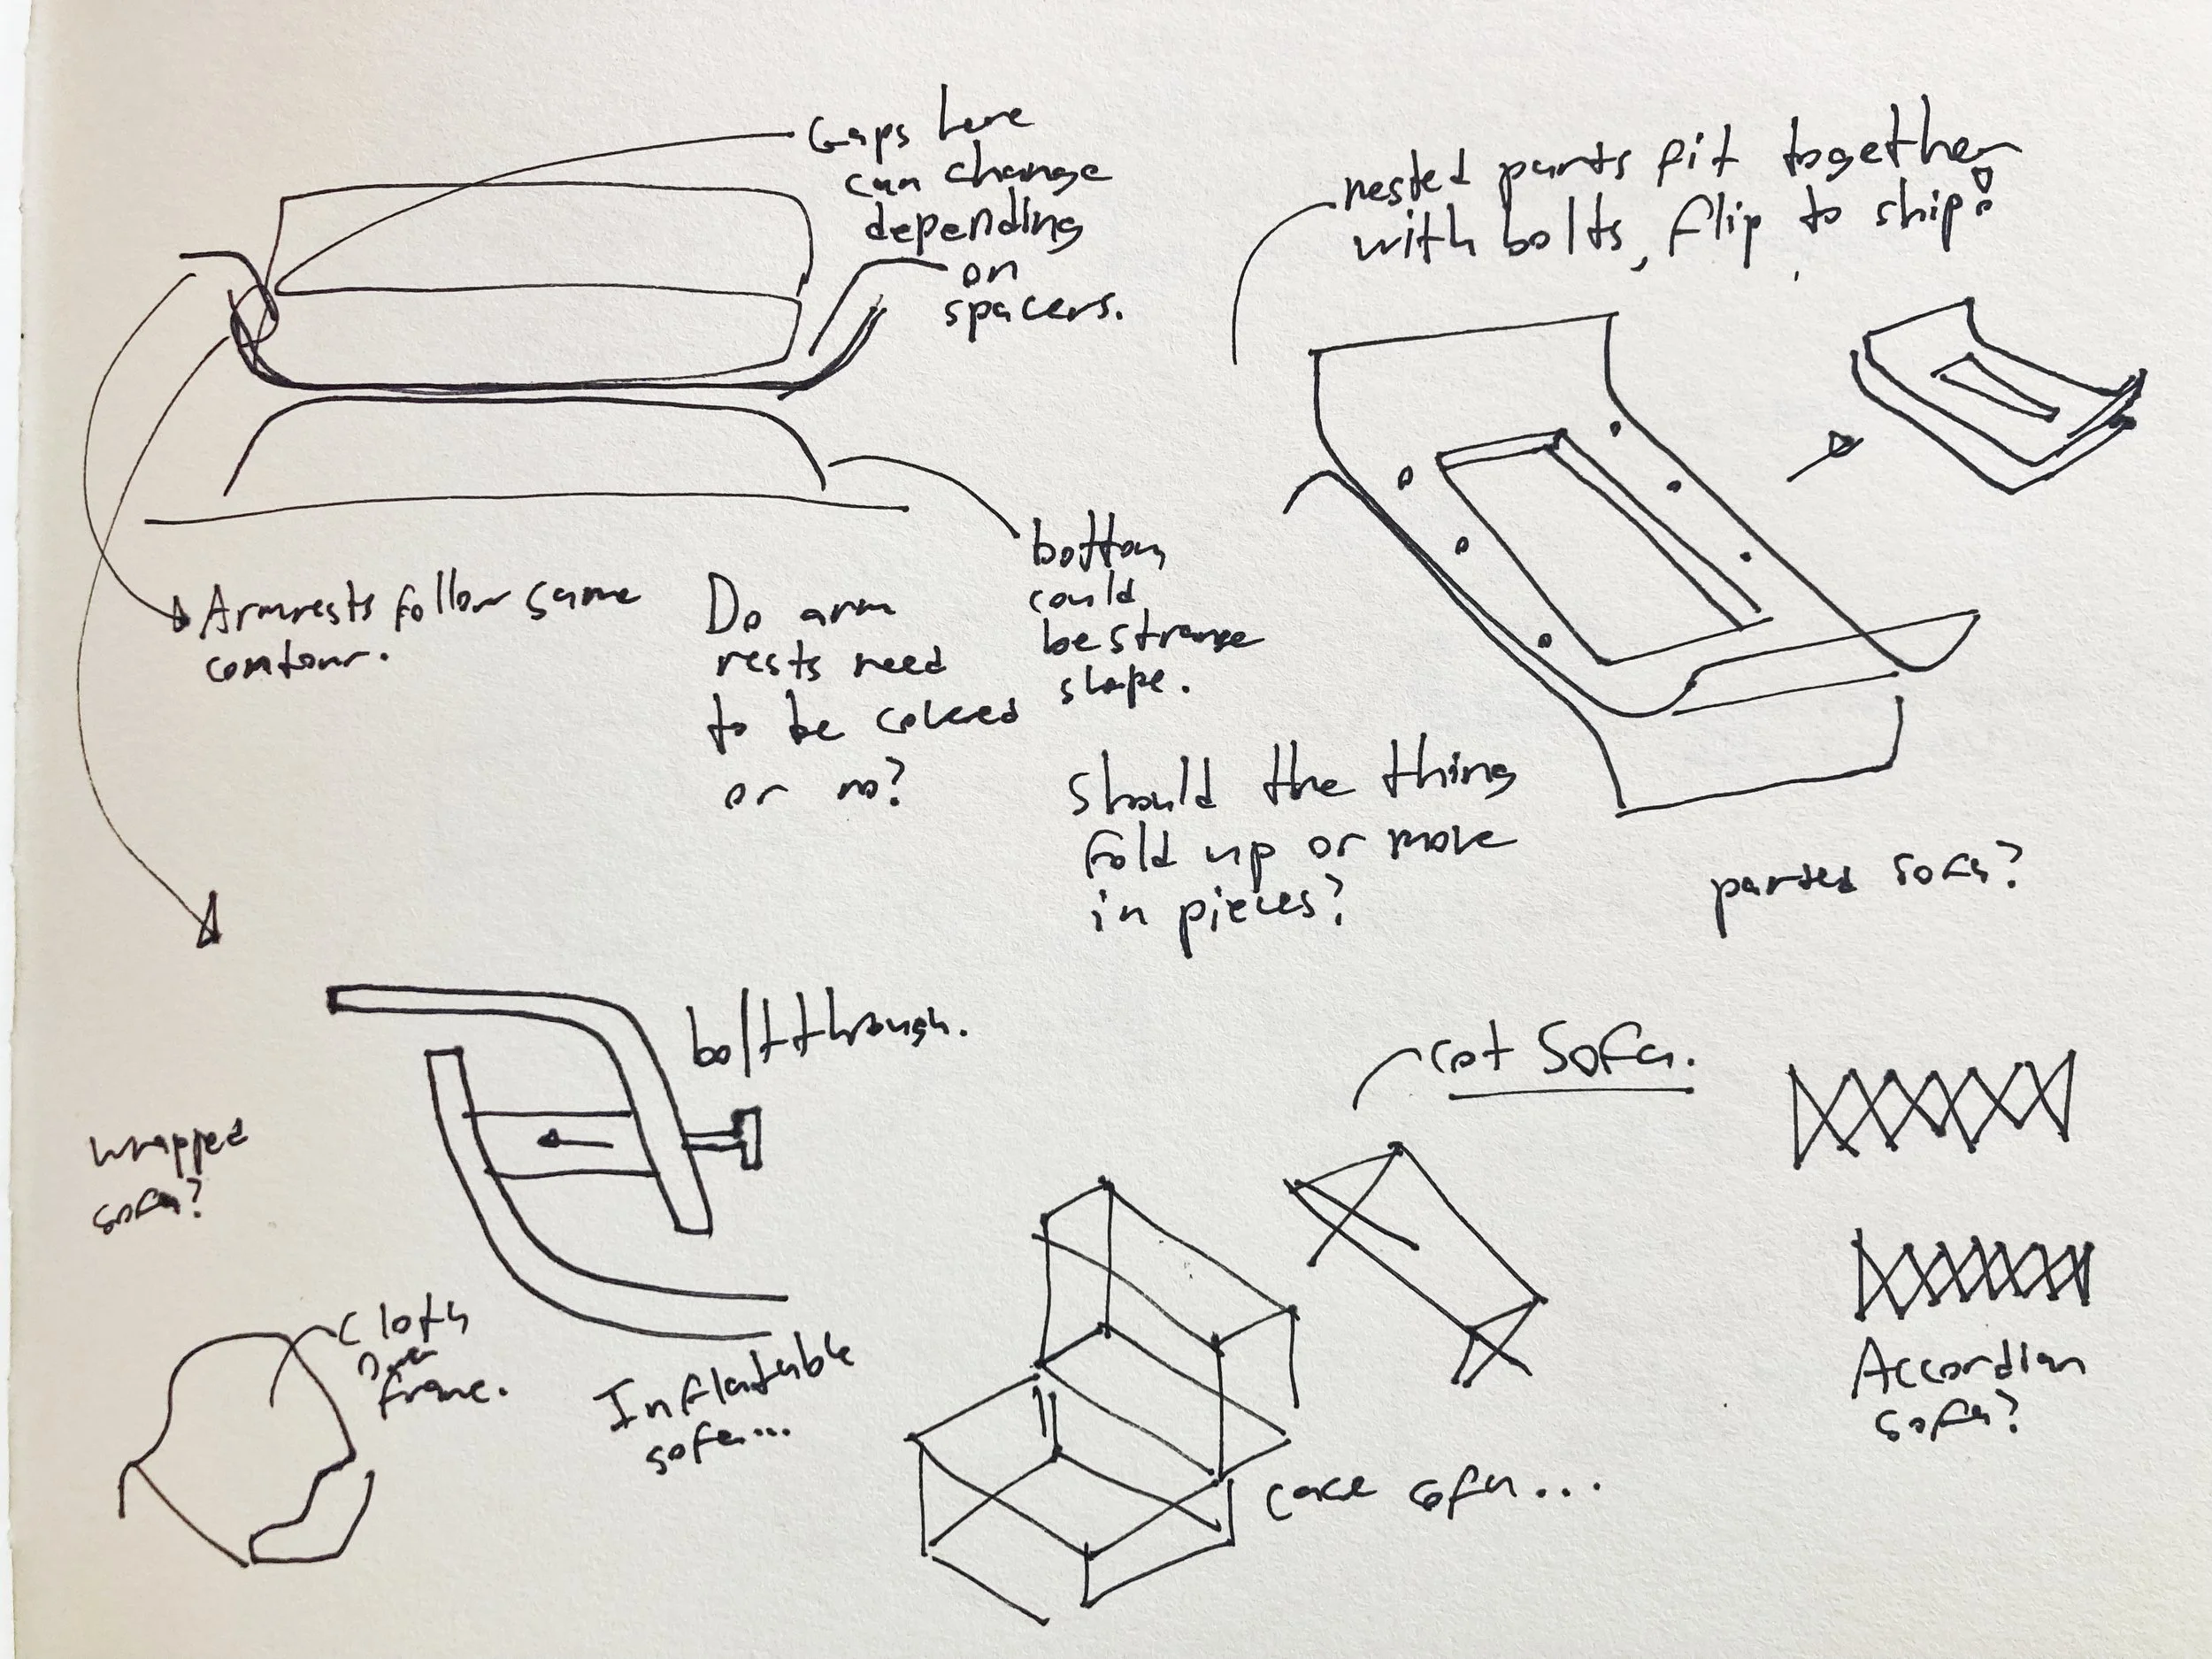 Gaps here
can change
depending
on
spacers.
nested parts fit together
with bolts, flip to ship!
Armrests follow same
contour.
Do arm
rests need
to be covered
or no?
bottom
could
be strange
shape.
Should the thing
fold up or move
in pieces?
parted sofa?
bolt through.
cot sofa.
wrapped
sofa?
Cloth
over
frame.
Inflatable
sofa...
case sofa...
Accordian
sofa?